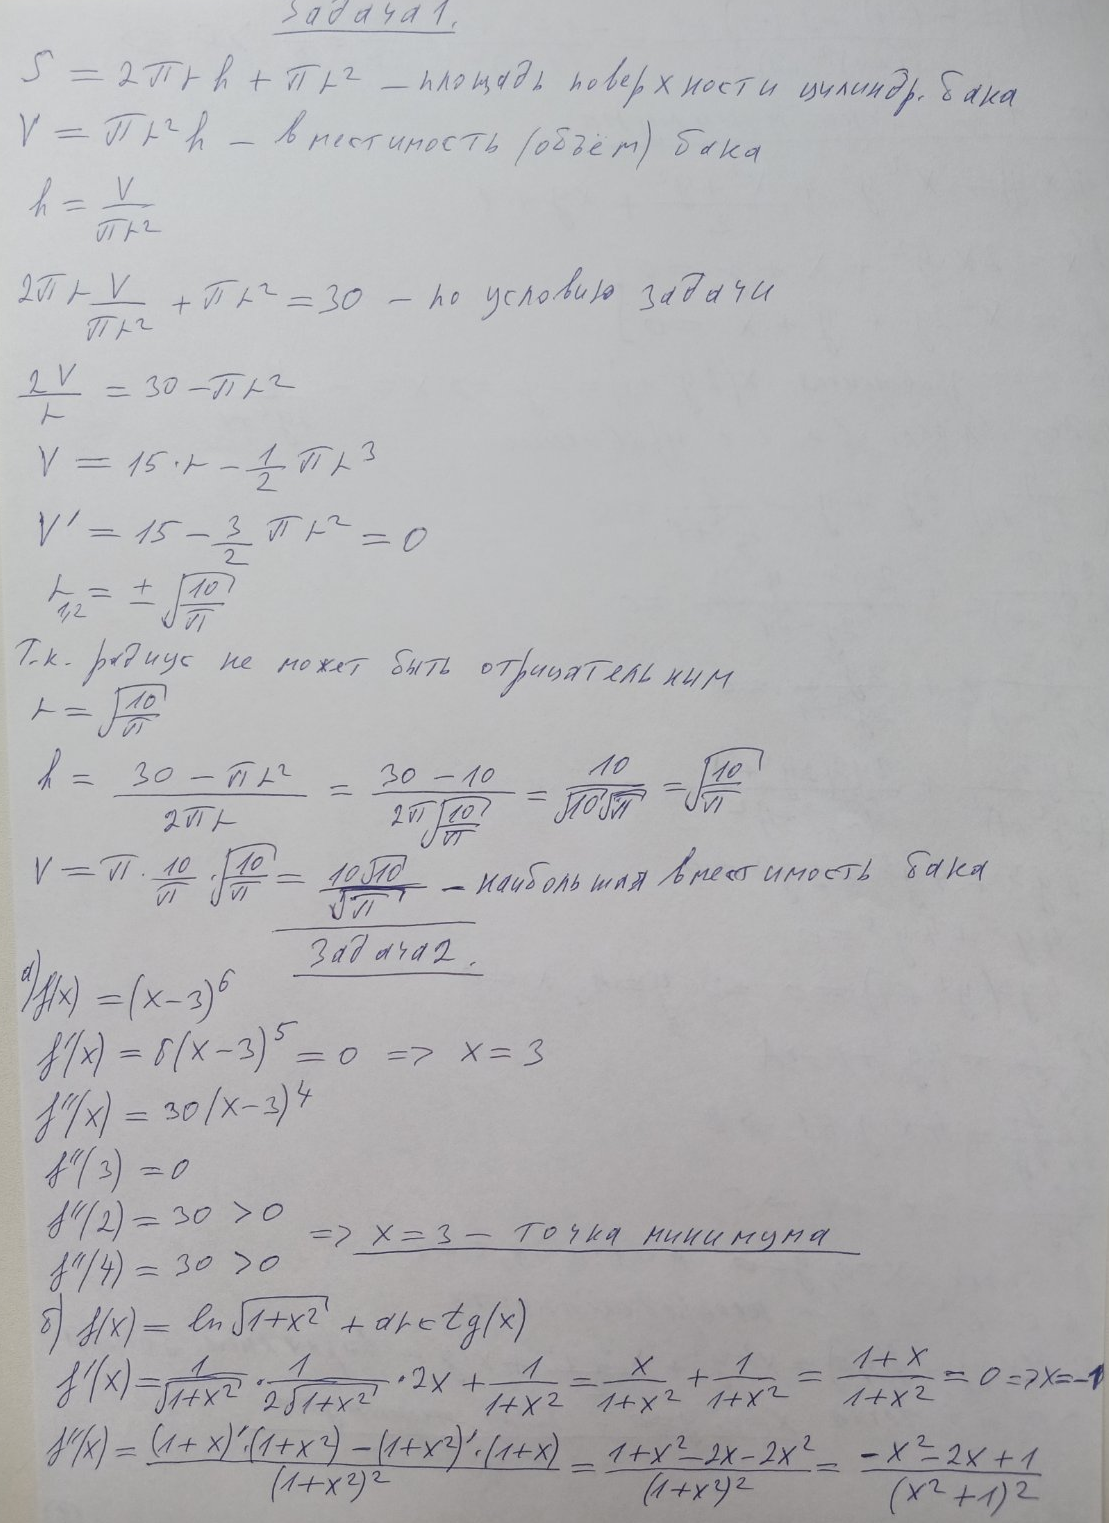 Задача 1.
S = 2πrh + πr² – площадь поверхности цилиндр. бака
V = πr²h – вместимость (объём) бака
h = V/(πr²)
2πr V/(πr²) + πr² = 30 – по условию задачи
2V/r = 30 – πr²
V = 15·r – 1/2 πr³
V' = 15 – 3/2 πr² = 0
r₁,₂ = ± √(10/π)
Т.к. радиус не может быть отрицательным
r = √(10/π)
h = (30 – πr²)/(2πr) = (30 – 10)/(2π√(10/π)) = 10/(√10√π) = √(10/π)
V = π · 10/π · √(10/π) = 10√10/√π – наибольшая вместимость бака
Задача 2.
а) f(x) = (x–3)⁶
f'(x) = 6(x–3)⁵ = 0 => x = 3
f''(x) = 30(x–3)⁴
f''(3) = 0
f''(2) = 30 > 0
=> x = 3 – точка минимума
f''(4) = 30 > 0
б) f(x) = ln√(1+x²) + arctg(x)
f'(x) = 1/√(1+x²) · 1/(2√(1+x²)) · 2x + 1/(1+x²) = x/(1+x²) + 1/(1+x²) = (1+x)/(1+x²) = 0 => x = –1
f''(x) = ((1+x)'·(1+x²) – (1+x²)'·(1+x))/(1+x²)² = (1+x²–2x–2x²)/(1+x²)² = (–x²–2x+1)/(x²+1)²